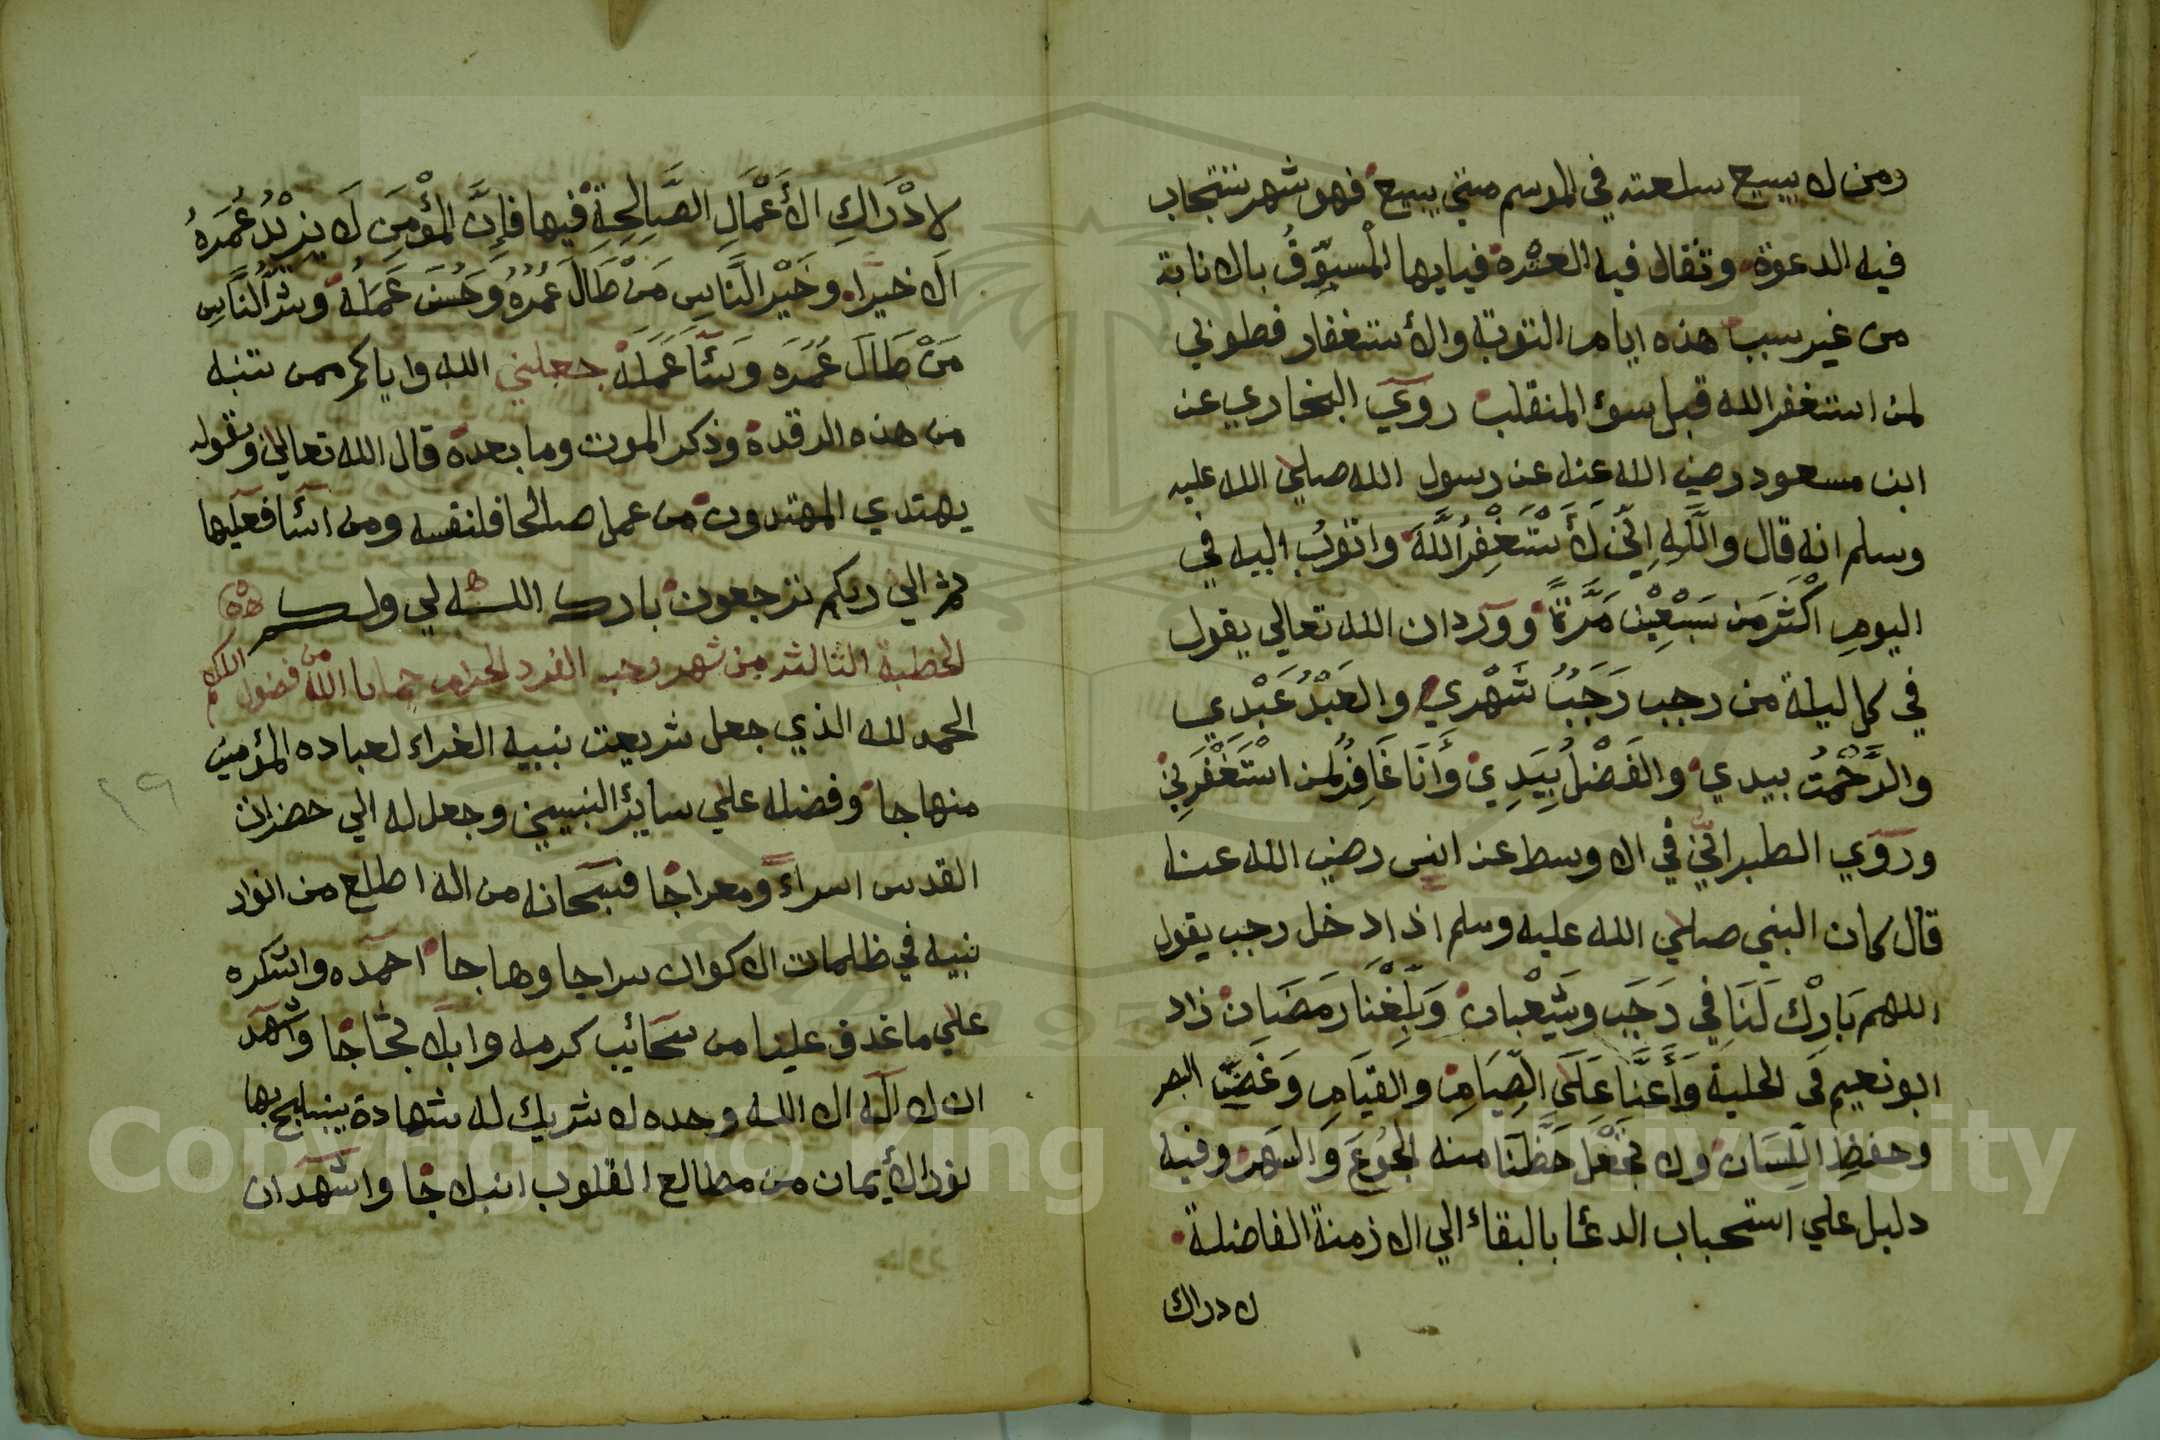 ومن لا يبيع سلعته في الموسم متي يبيع فهو شهر تستجاب
فيه الدعوة وتقال فيه العثرة فيايها المسوّفُ بالانابة
من غير سبب هذه ايام التوبة والأستغفار فطوبي
لمن استغفر الله قبل سوء المنقلب رَوَي البخاري عن
ابن مسعود رضي الله عنه عن رسول الله صلي الله عليه
وسلم انه قال واللَّهِ اِنّي لَأَسْتَغْفِرُ اللَّهَ واتوبُ اليه في
اليومِ اكْثَرَ مَن سَبْعِيْنَ مَرَّةً ووَرَد ان الله تعالي يقول
في كل ليلة من رجب رَجَبُ شَهْرِي والعَبْدُ عَبْدِي
والرَّحْمَتُ بيدي والفَضْلُ بِيَدِي وأَنَا غَافِرُ لمن اسْتَغْفَرَنِي
ورَوَي الطبرانيّ في الاوسط عن انس رضي الله عنه
قال كان النبي صلي الله عليه وسلم اذا دخل رجب يقول
اللهم بَارِكْ لَنَا في رَجَبَ وشَعْبان وَبَلِّغْنَا رَمَضَانَ زاد
ابو نعيم فَي الحلية وَأَعنَّا عَلَي الصِّيَامِ والقيَامِ وَغَضِّ البصر
وحفظِ اللِّسَان ولا تَجْعَلْ حَظَّنَا منه الجُوعَ وَالسَهَر وفيه
دليل علي استحباب الدعا بالبقاء الي الازمنة الفاضلة
لادراك
لادْرَاكِ الأَعْمَالِ الصَّالِحِةِ فيها فإِنَّ المُؤْمِنَ لَا يَزِيْدُ عُمَرهُ
الَا خيرًا وخَيْرُ النَّاسِ مَنْ طَالَ عُمُرُهُ وحَسُنَ عَمَلُهُ وشرُّ النَّاسِ
مَنْ طَالَ عُمُرَه وَسَآ عَمَلَهَ جعلني الله واياكم ممن تنبه
من هذه الرقدة وذكر الموت وما بعده قال الله تعالي وبقوله
يهتدي المهتدون من عمل صالحا فلنفسه ومن اسَآ فعَليها
ثم الي ربكم ترجعون بارك اللـه لي ولكم
الخطبة الثالثة من شهر رجب الفرد الحرام حمانا الله من فضول الكلام
الحمد لله الذي جعل شريعت نبيه الغراء لعباده المؤمين
منهاجا وفضله علي سائر النبيين وجعل له الي حضرات
القدس اسراءً ومعراجًا فسبحَانه من اله اطلع من انوار
نبيه في ظلمات الاكوان سراجا وهاجا احمَده واشكره
علي ما غدق علينا من سحَائب كرمه وابلا ثجَّاجًا واشهَد
ان لا اله الا الله وحده لا شريك له شهادة ينبلج بها
نور الأيمان من مطالع القلوب انبلاجًا واشهَد ان
٢٩
Copyright © King Saud University